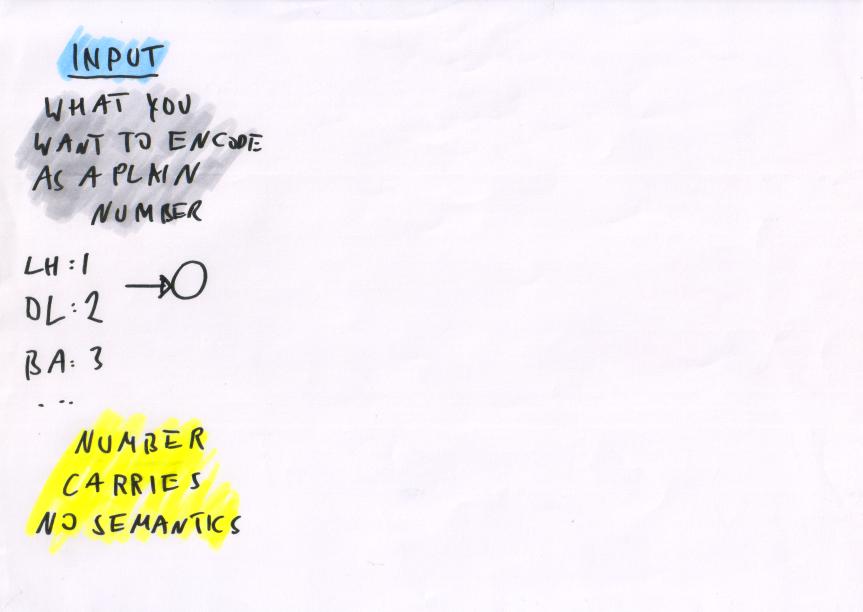 INPUT
WHAT YOU
WANT TO ENCODE
AS A PLAIN
NUMBER
LH:1
DL:2
BA: 3
...
NUMBER
CARRIES
NO SEMANTICS